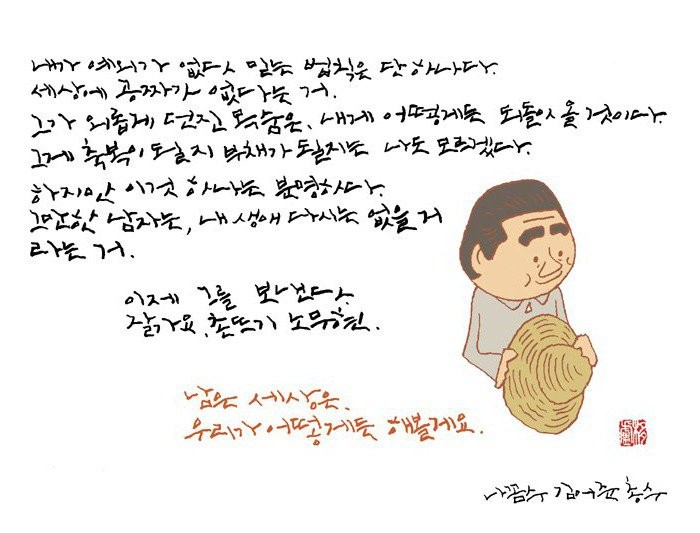 내가 예외가 없다고 믿는 법칙은 단 하나다.
세상에 공짜가 없다는 거.
그가 외롭게 던진 목숨은, 내게 어떻게든 되돌아올 것이다.
그게 축복이 될지 부채가 될지는 나도 모르겠다.
하지만 이것 하나는 분명하다.
그만한 남자는, 내 생애 다시는 없을 거
라는 거.
이제 그를 보낸다.
잘가요, 촌뜨기 노무현.
남은 세상은,
우리가 어떻게든 해볼게요.
나꼼수 김어준 총수